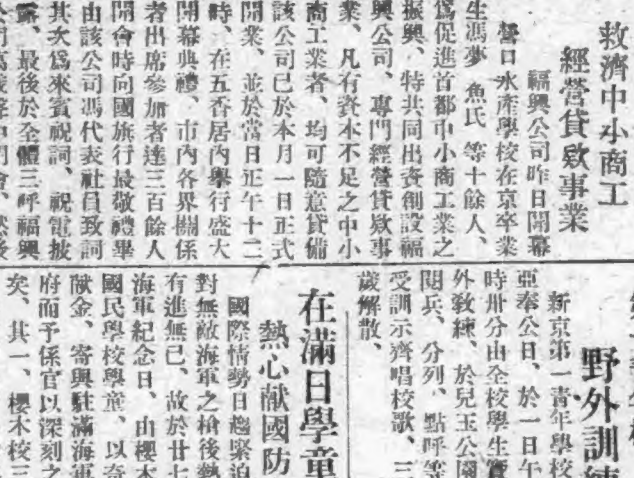 救濟中小商工
經營貸欵事業
福興公司昨日開幕
營口水產學校在京卒業
生馮夢魚氏等十餘人、
爲促進首都中小商工業之
振興、特共同出資創設福
興公司、專門經營貸欵事
業、凡有資本不足之中小
商工業者、均可隨意貸備
該公司已於本月一日正式
開業、並於當日正午十二
時、在五香居內舉行盛大
開幕典禮、市內各界關係
者出席參加者達三百餘人
開會時向國旗行最敬禮畢
由該公司馮代表社員致詞
其次爲來賓祝詞、祝電披
露、最後於全體三呼福興
野外訓練
新京第一青年學校
亞奉公日、於一日午
時卅分由全校學生實
外敎練、於兒玉公園
閱兵、分列、點呼等
受訓示齊唱校歌、三
歲解散、
在滿日學童
熱心献國防
國際情勢日趨緊迫
對無敵海軍之槍後熱
有進無已、故於廿七
海軍紀念日、由櫻木
國民學校學童、以奇
献金、寄與駐滿海軍
府而予係官以深刻之
矣、其一、櫻木校三